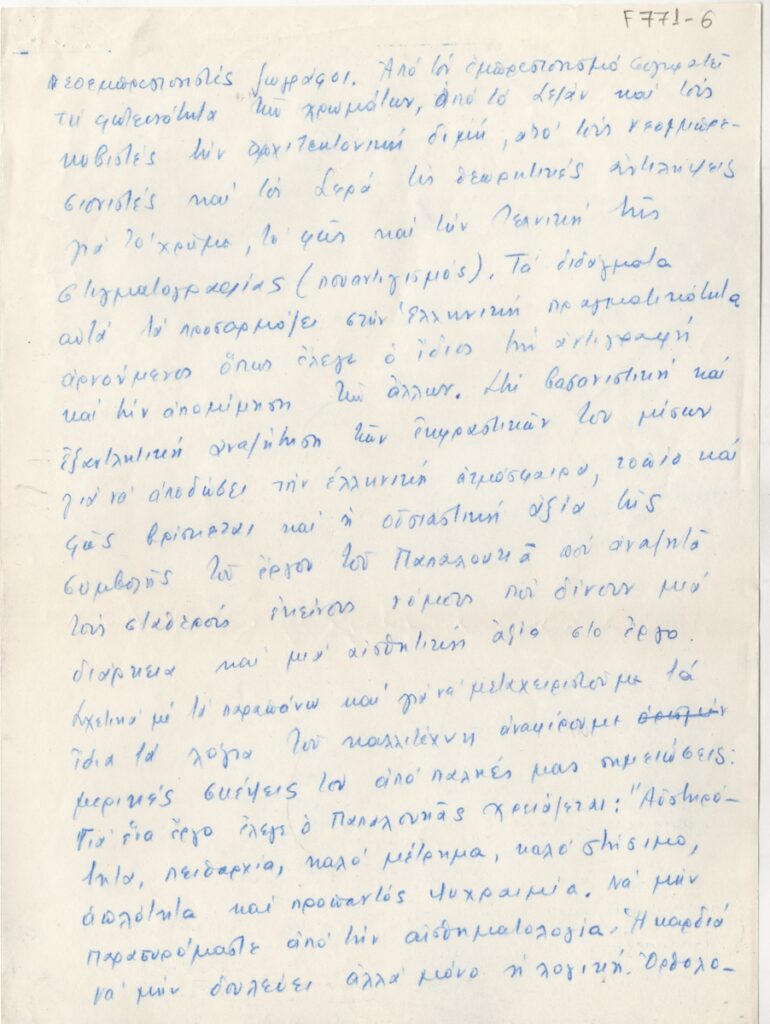 F771-6
νεοεμπρεσιονιστές ζωγράφοι. Ἀπό τόν ἐμπρεσιονισμό συγκρατεῖ
τή φωτεινότητα τῶν χρωμάτων, ἀπό τό Σεζάν καί τούς
κυβιστές τήν ἀρχιτεκτονική δομή, ἀπό τούς νεοεμπρε-
σιονιστές καί τόν Σερά τίς θεωρητικές ἀντιλήψεις
γιά τό χρῶμα, τό φῶς καί τήν τεχνική τῆς
στιγματογραφίας (πουαντιγισμός). Τά διδάγματα
αὐτά τά προσαρμόζει στήν ἑλληνική πραγματικότητα
ἀρνούμενος ὅπως ἔλεγε ὁ ἴδιος τήν ἀντιγραφή
καί τήν ἀπομίμηση τῶν ἄλλων. Στή βασανιστική καί
ἐξαντλητική ἀναζήτηση τῶν ἐκφραστικῶν του μέσων
γιά νά ἀποδώσει τήν ἑλληνική ἀτμόσφαιρα, τοπίο καί
φῶς βρίσκεται καί ἡ οὐσιαστική ἀξία τῆς
συμβολῆς τοῦ ἔργου τοῦ Παπαλουκᾶ πού ἀναζητᾶ
τούς σταθερούς ἐκείνους νόμους πού δίνουν μιά
διάρκεια καί μιά αἰσθητική ἀξία στό ἔργο.
Σχετικά μέ τά παραπάνω καί γιά νά μεταχειριστοῦμε τά
ἴδια τά λόγια τοῦ καλλιτέχνη ἀναφέρουμε
μερικές σκέψεις του ἀπό παλιές μας σημειώσεις:
Γιά ἕνα ἔργο ἔλεγε ὁ Παπαλουκᾶς χρειάζεται: "Αὐστηρό-
τητα, πειθαρχία, καλό μέτρημα, καλό στήσιμο,
ἁπλότητα καί προπαντός ψυχραιμία. Νά μήν
παρασυρόμαστε ἀπό τήν αἰσθηματολογία. Ἡ καρδιά
νά μήν δουλεύει ἀλλά μόνο ἡ λογική. Ὀρθολο-